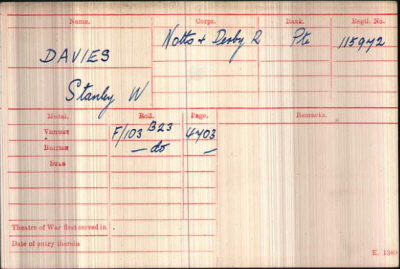 Name. Corps. Rank. Regtl. No.
DAVIES Notts & Derby R Pte 115942
Stanley W
Medal. Roll. Page. Remarks.
Victory F/103 B23 4403
British — do —
Star
Theatre of War first served in
Date of entry therein
K. 1380